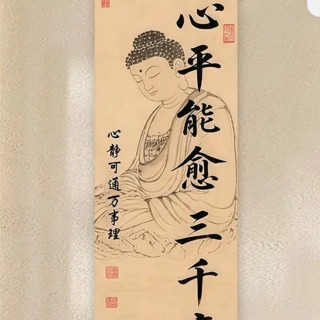 心平能愈三千
心静可通万事理